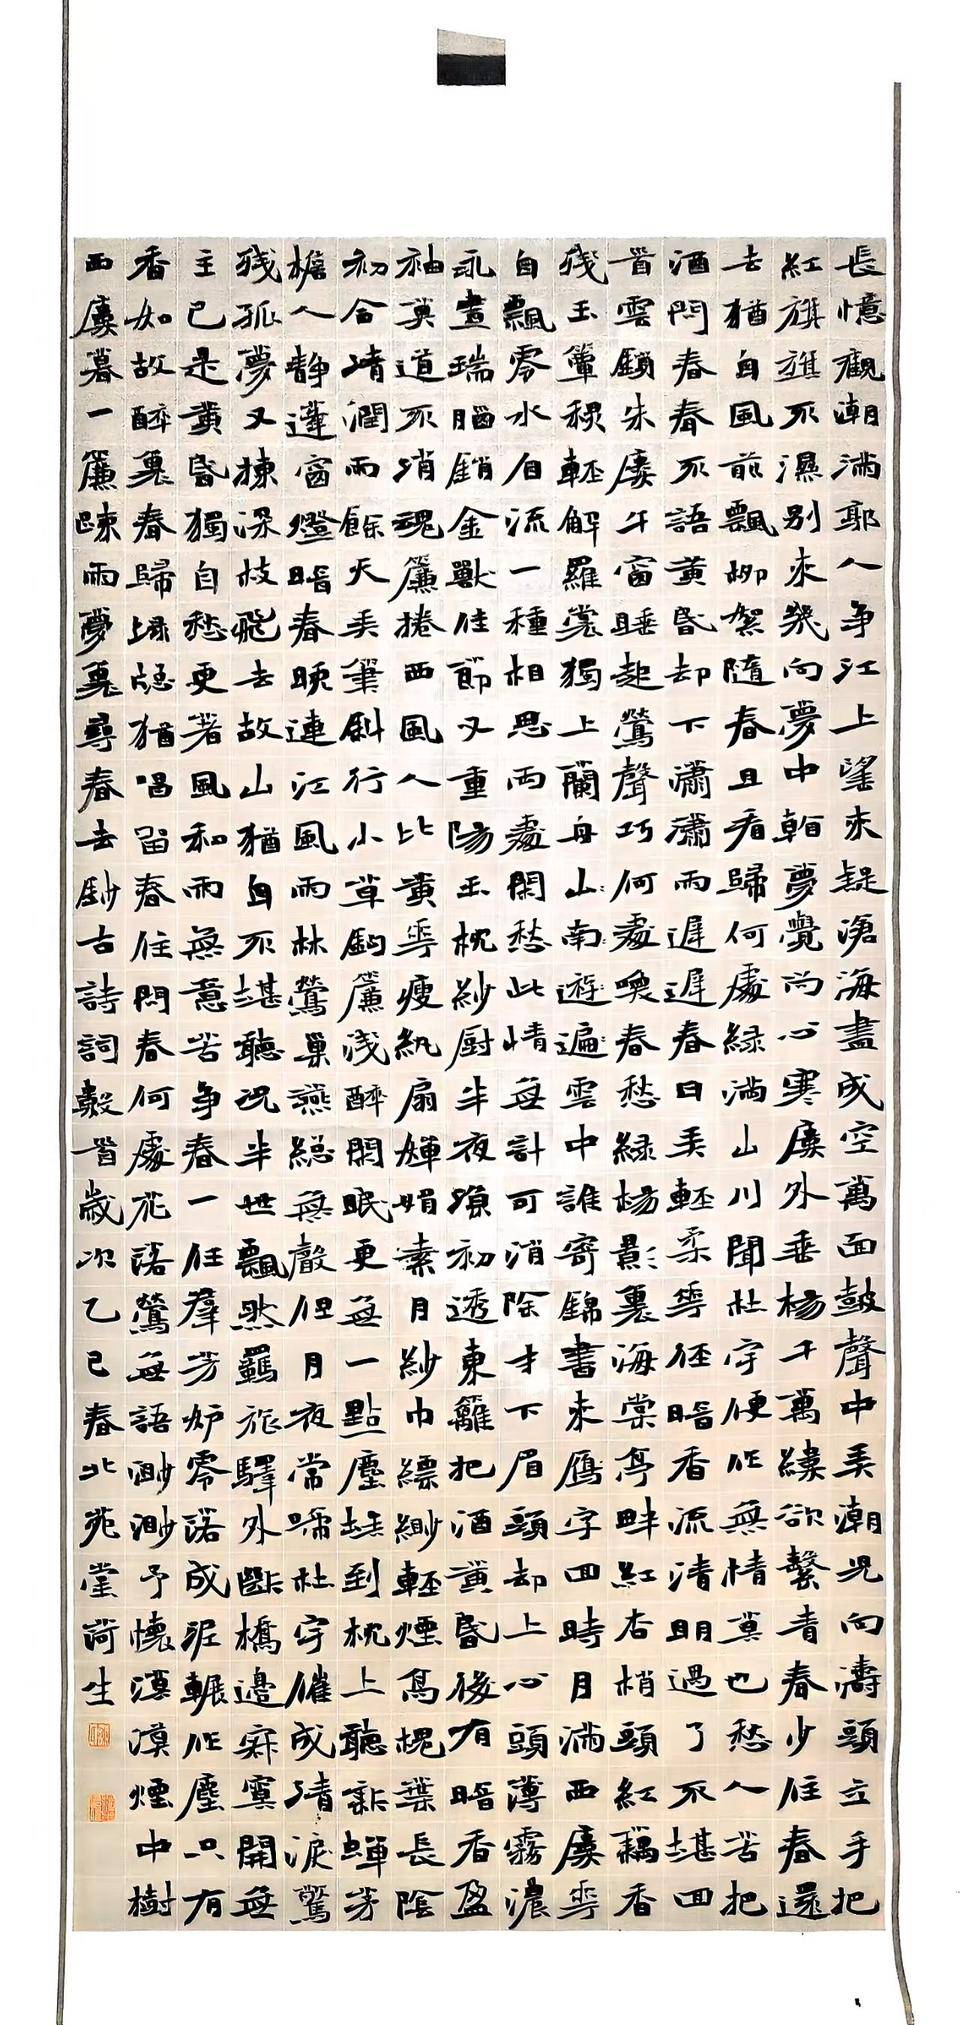 長憶觀潮滿郭人爭江上望來疑滄海盡成空萬面鼓聲中弄潮兒向濤頭立手把
紅旗旗不濕別來幾向夢中看夢覺尚心寒廉外垂楊千萬縷欲繫青春少住春還
去猶自風前飄柳絮隨春且看歸何處綠滿山川聞杜宇便作無情莫也愁人苦把
酒問春春不語黃昏卻下瀟瀟雨遲遲春日弄輕柔花徑暗香流清明過了不堪回
首雲鎖朱廔午窗睡起鶯聲巧何處喚春愁綠楊影裏海棠亭畔紅杏梢頭紅藕香
殘玉簟秋輕解羅裳獨上蘭舟山南遊遍雲中誰寄錦書來雁字回時月滿西廔花
自飄零水自流一種相思兩處閑愁此情無計可消除才下眉頭卻上心頭薄霧濃
永晝瑞腦銷金獸佳節又重陽玉枕紗廚半夜涼初透東籬把酒黃昏後有暗香盈
袖莫道不消魂簾捲西風人比黃花瘦紈扇嬋娟素月紗巾縹緲輕煙高槐葉長陰
初合清潤雨餘天弄筆斜行小草鉤簾淺醉閑眠更無一點塵埃到枕上聽新蟬茅
檐人靜蓬窗燈暗春晚連江風雨林鶯巢燕總無聲但月夜常啼杜宇催成清淚驚
殘孤夢又揀深枝飛去故山猶自不堪聽況半世飄然羈旅驛外斷橋邊寂寞開無
主已是黃昏獨自愁更著風和雨無意苦爭春一任群芳妒零落成泥輾作塵只有
香如故醉裏春歸綠窗猶唱留春住問春何處花落鶯無語渺渺予懷漠漠煙中樹
西廔暮一簾疎雨夢裏尋春去鈔古詩詞數首歲次乙巳春北苑堂荷生